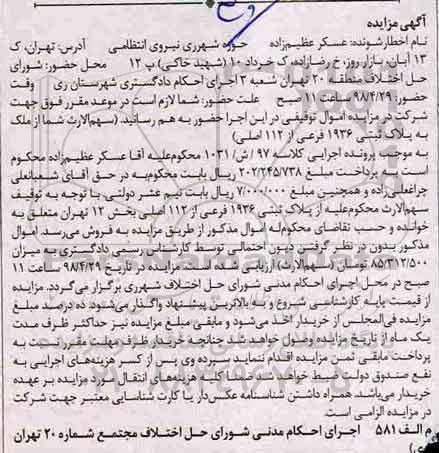 آگهی مزایده
نام اخطارشونده: عسکر عظیم‌زاده حوزه شهرری نیروی انتظامی آدرس: تهران، ک
۱۳ آبان، بازار روز، خ رضازاده، ک خرداد ۱۰ (شهید خاکی) پ ۱۲ محل حضور: شورای
حل اختلاف منطقه ۲۰ تهران شعبه ۳ اجرای احکام دادگستری شهرستان ری وقت
حضور: ۹۸/۴/۲۹ ساعت ۱۱ صبح علت حضور: شما لازم است در موعد مقرر فوق جهت
شرکت در مزایده اموال توقیفی در این اجرا حضور به هم رسانید. (سهم‌الارث شما از ملک
به پلاک ثبتی ۱۹۳۶ فرعی از ۱۱۲ اصلی)
به موجب پرونده اجرایی کلاسه ۹۷ / ش/ ۱۰۳۱ محکوم‌علیه آقا عسکر عظیم‌زاده محکوم
است به پرداخت مبلغ ۲۰۲/۲۴۵/۷۳۸ ریال بابت محکوم‌به در حق آقای شعبانعلی
چراغعلی‌زاده و همچنین مبلغ ۷/۰۰۰/۰۰۰ ریال بابت نیم عشر دولتی. با توجه به توقیف
سهم‌الارث محکوم‌علیه از پلاک ثبتی ۱۹۳۶ فرعی از ۱۱۲ اصلی بخش ۱۲ تهران متعلق به
خوانده و حسب تقاضای محکوم‌له اموال مذکور از طریق مزایده به فروش می‌رسد. اموال
مذکور بدون در نظر گرفتن دیون احتمالی توسط کارشناس رسمی دادگستری به میزان
۸۵/۳۱۲/۵۰۰ تومان (سهم‌الارث) ارزیابی شده است. مزایده در تاریخ ۹۸/۴/۲۹ ساعت ۱۱
صبح در محل اجرای احکام مدنی شورای حل اختلاف شهرری برگزار می‌گردد. مزایده
از قیمت پایه کارشناسی شروع و به بالاترین پیشنهاد واگذار می‌شود. ده درصد مبلغ
مزایده فی‌المجلس از خریدار اخذ می‌شود و مابقی مبلغ مزایده نیز حداکثر ظرف مدت
یک ماه از تاریخ مزایده وصول خواهد شد چنانچه خریدار ظرف مهلت مقرر نسبت به
پرداخت مابقی ثمن مزایده اقدام ننماید سپرده وی پس از کسر هزینه‌های اجرایی به
نفع صندوق دولت ضبط خواهد شد. ضمنا کلیه هزینه‌های انتقال مورد مزایده بر عهده
خریدار می‌باشد. همراه داشتن شناسنامه عکس‌دار یا کارت شناسایی معتبر جهت شرکت
در مزایده الزامی است.
م الف ۵۸۱ اجرای احکام مدنی شورای حل اختلاف مجتمع شماره ۲۰ تهران